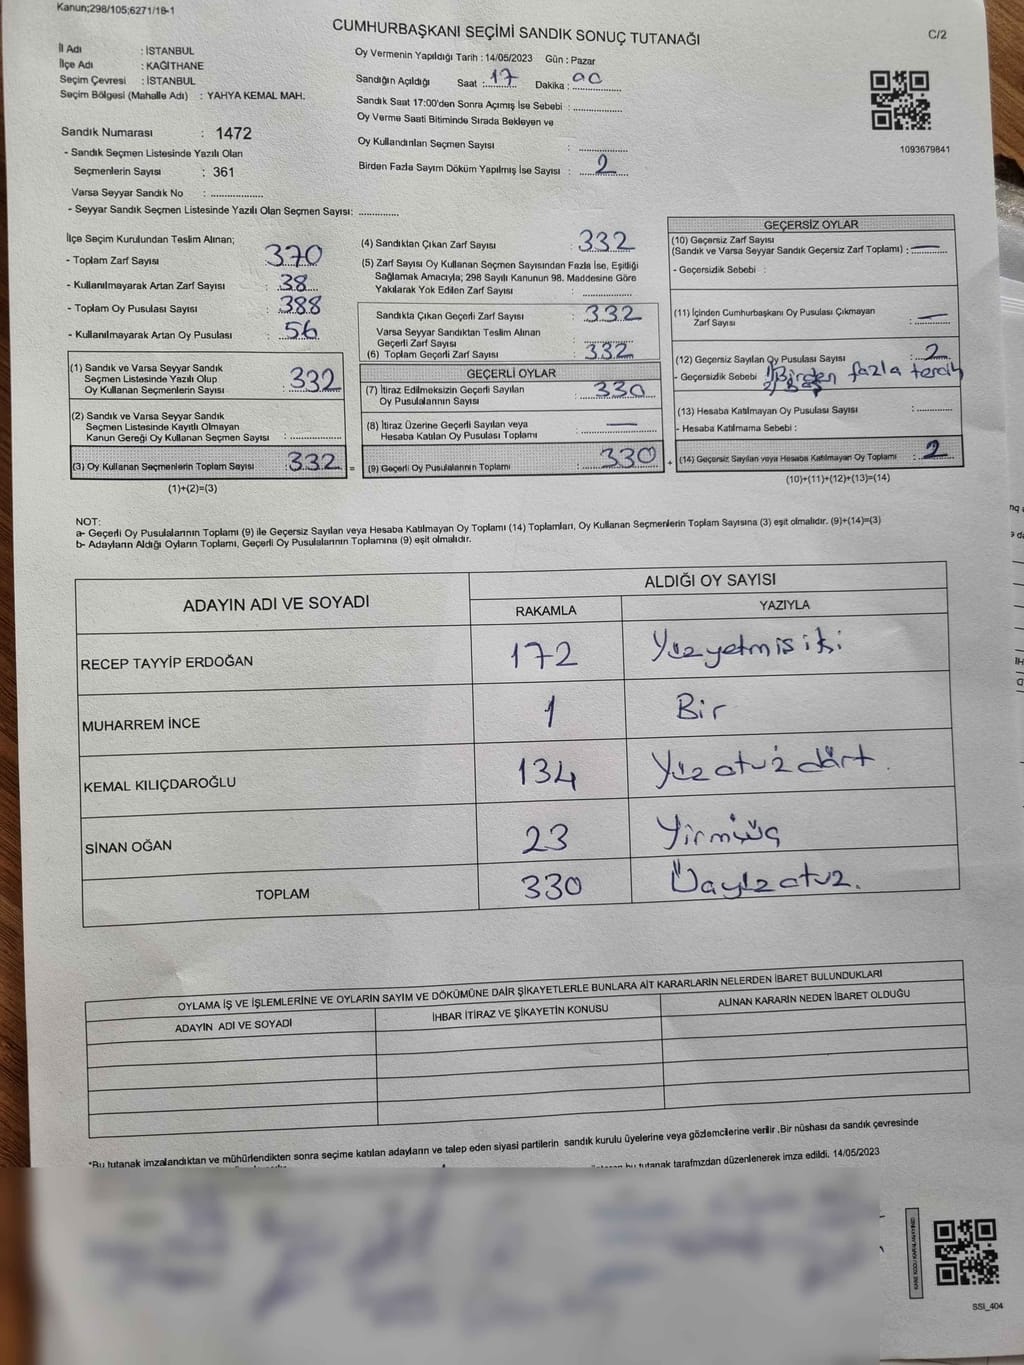 Kanun;298/105;6271/18-1
CUMHURBAŞKANI SEÇİMİ SANDIK SONUÇ TUTANAĞI
C/2
İl Adı : İSTANBUL
İlçe Adı : KAĞITHANE
Seçim Çevresi : İSTANBUL
Seçim Bölgesi (Mahalle Adı) : YAHYA KEMAL MAH.
Oy Vermenin Yapıldığı Tarih : 14/05/2023 Gün : Pazar
Sandığın Açıldığı Saat : 17 Dakika : 00
Sandık Saat 17:00'den Sonra Açımış İse Sebebi : ..............
Oy Verme Saati Bitiminde Sırada Bekleyen ve
Oy Kullandırılan Seçmen Sayısı : ..............
Birden Fazla Sayım Döküm Yapılmış İse Sayısı : 2
1093679841
Sandık Numarası : 1472
- Sandık Seçmen Listesinde Yazılı Olan
Seçmenlerin Sayısı : 361
Varsa Seyyar Sandık No : ..............
- Seyyar Sandık Seçmen Listesinde Yazılı Olan Seçmen Sayısı: ............
İlçe Seçim Kurulundan Teslim Alınan;
- Toplam Zarf Sayısı : 370
- Kullanılmayarak Artan Zarf Sayısı : 38
- Toplam Oy Pusulası Sayısı : 388
- Kullanılmayarak Artan Oy Pusulası : 56
(1) Sandık ve Varsa Seyyar Sandık
Seçmen Listesinde Yazılı Olup
Oy Kullanan Seçmenlerin Sayısı : 332
(2) Sandık ve Varsa Seyyar Sandık
Seçmen Listesinde Kayıtlı Olmayan
Kanun Gereği Oy Kullanan Seçmen Sayısı : ..............
(3) Oy Kullanan Seçmenlerin Toplam Sayısı : 332 =
(1)+(2)=(3)
(4) Sandıktan Çıkan Zarf Sayısı : 332
(5) Zarf Sayısı Oy Kullanan Seçmen Sayısından Fazla İse, Eşitliği
Sağlamak Amacıyla; 298 Sayılı Kanunun 98. Maddesine Göre
Yakılarak Yok Edilen Zarf Sayısı : ..............
Sandıkta Çıkan Geçerli Zarf Sayısı : 332
Varsa Seyyar Sandıktan Teslim Alınan
Geçerli Zarf Sayısı : ..............
(6) Toplam Geçerli Zarf Sayısı : 332
GEÇERLİ OYLAR
(7) İtiraz Edilmeksizin Geçerli Sayılan
Oy Pusulalarının Sayısı : 330
(8) İtiraz Üzerine Geçerli Sayılan veya
Hesaba Katılan Oy Pusulası Toplamı : —
(9) Geçerli Oy Pusulalarının Toplamı : 330 +
GEÇERSİZ OYLAR
(10) Geçersiz Zarf Sayısı
(Sandık ve Varsa Seyyar Sandık Geçersiz Zarf Toplamı) : —
- Geçersizlik Sebebi :
(11) İçinden Cumhurbaşkanı Oy Pusulası Çıkmayan
Zarf Sayısı : —
(12) Geçersiz Sayılan Oy Pusulası Sayısı : 2
- Geçersizlik Sebebi 1) Birden fazla tercih
2) Boş
(13) Hesaba Katılmayan Oy Pusulası Sayısı : ..............
- Hesaba Katılmama Sebebi :
(14) Geçersiz Sayılan veya Hesaba Katılmayan Oy Toplamı : 2
(10)+(11)+(12)+(13)=(14)
NOT:
a- Geçerli Oy Pusulalarının Toplamı (9) ile Geçersiz Sayılan veya Hesaba Katılmayan Oy Toplamı (14) Toplamları, Oy Kullanan Seçmenlerin Toplam Sayısına (3) eşit olmalıdır. (9)+(14)=(3)
b- Adayların Aldığı Oyların Toplamı, Geçerli Oy Pusulalarının Toplamına (9) eşit olmalıdır.
ADAYIN ADI VE SOYADI
ALDIĞI OY SAYISI
RAKAMLA YAZIYLA
RECEP TAYYİP ERDOĞAN 172 Yüzyetmişiki
MUHARREM İNCE 1 Bir
KEMAL KILIÇDAROĞLU 134 Yüzotuzdört.
SİNAN OĞAN 23 Yirmiüç
TOPLAM 330 Üçyüzotuz.
OYLAMA İŞ VE İŞLEMLERİNE VE OYLARIN SAYIM VE DÖKÜMÜNE DAİR ŞİKAYETLERLE BUNLARA AİT KARARLARIN NELERDEN İBARET BULUNDUKLARI
ADAYIN ADI VE SOYADI
İHBAR İTİRAZ VE ŞİKAYETİN KONUSU
ALINAN KARARIN NEDEN İBARET OLDUĞU
*Bu tutanak imzalandıktan ve mühürlendikten sonra seçime katılan adayların ve talep eden siyasi partilerin sandık kurulu üyelerine veya gözlemcilerine verilir.Bir nüshası da sandık çevresinde
bu tutanak tarafımızdan düzenlenerek imza edildi. 14/05/2023
SSI_404